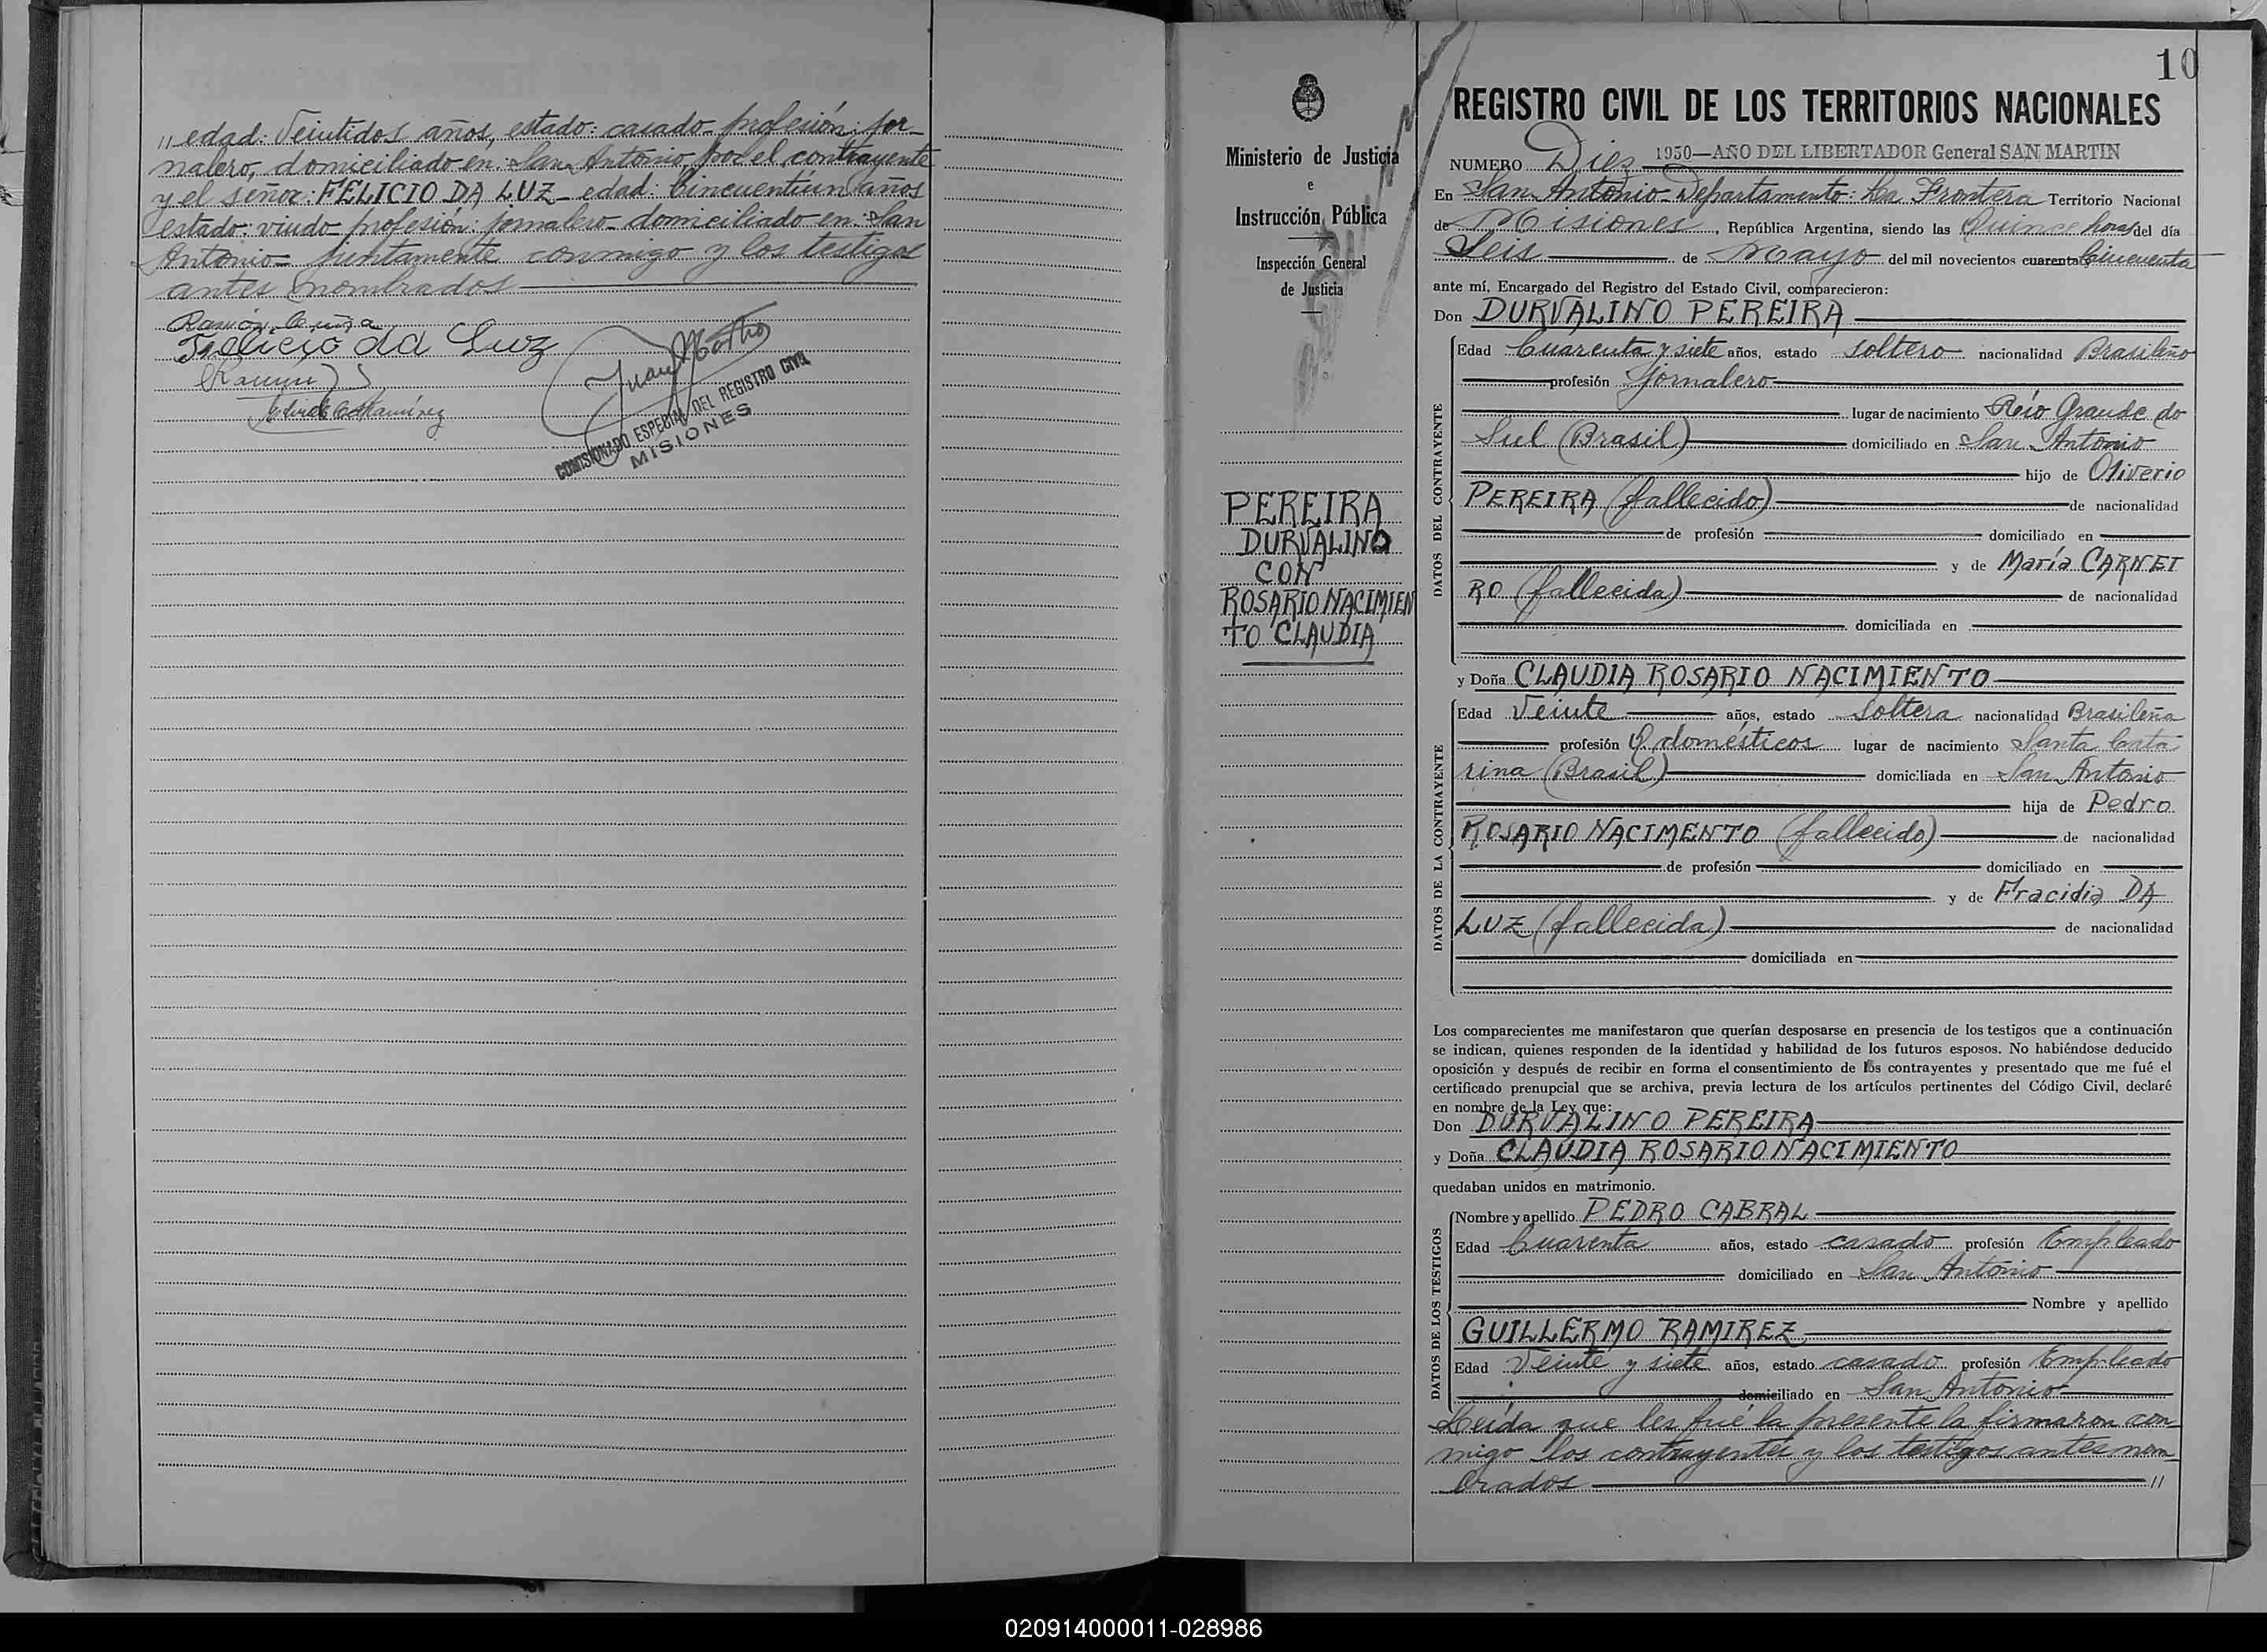 " edad: Veintidos años, estado: casado- profesión: jor-
nalero, domiciliado en: San Antonio, por el contrayente
y el señor: FELICIO DA LUZ- edad: Cincuentiun años
estado: viudo- profesión: jornalero- domiciliado en: San
Antonio- juntamente conmigo y los testigos
antes nombrados
Felicio da Luz
COMISIONADO ESPECIAL DEL REGISTRO CIVIL
MISIONES
Ministerio de Justicia
e
Instrucción Pública
Inspección General
de Justicia
PEREIRA
DURVALINO
CON
ROSARIO NACIMIEN
TO CLAUDIA
10
REGISTRO CIVIL DE LOS TERRITORIOS NACIONALES
NUMERO Diez 1950—AÑO DEL LIBERTADOR General SAN MARTIN
En San Antonio- Departamento: La Frontera Territorio Nacional
de Misiones, República Argentina, siendo las Quince horas del día
Seis de Mayo del mil novecientos cuarenta Cincuenta
ante mí, Encargado del Registro del Estado Civil, comparecieron:
Don DURVALINO PEREIRA
DATOS DEL CONTRAYENTE
Edad Cuarenta y siete años, estado soltero nacionalidad Brasileño
profesión Jornalero
lugar de nacimiento Río Grande do
Sul (Brasil) domiciliado en San Antonio
hijo de Oliverio
PEREIRA (fallecido) de nacionalidad
de profesión domiciliado en
y de María CARNEI
RO (fallecida) de nacionalidad
domiciliada en
y Doña CLAUDIA ROSARIO NACIMIENTO
DATOS DE LA CONTRAYENTE
Edad Veinte años, estado Soltera nacionalidad Brasileña
profesión Q. domésticos lugar de nacimiento Santa Cata
rina (Brasil) domiciliada en San Antonio
hija de Pedro
ROSARIO NACIMENTO (fallecido) de nacionalidad
de profesión domiciliado en
y de Fracidia DA
LUZ (fallecida) de nacionalidad
domiciliada en
Los comparecientes me manifestaron que querían desposarse en presencia de los testigos que a continuación
se indican, quienes responden de la identidad y habilidad de los futuros esposos. No habiéndose deducido
oposición y después de recibir en forma el consentimiento de los contrayentes y presentado que me fué el
certificado prenupcial que se archiva, previa lectura de los artículos pertinentes del Código Civil, declaré
en nombre de la Ley que:
Don DURVALINO PEREIRA
y Doña CLAUDIA ROSARIO NACIMIENTO
quedaban unidos en matrimonio.
DATOS DE LOS TESTIGOS
Nombre y apellido PEDRO CABRAL
Edad Cuarenta años, estado casado profesión Empleado
domiciliado en San Antonio
Nombre y apellido
GUILLERMO RAMIREZ
Edad Veinte y siete años, estado casado profesión Empleado
domiciliado en San Antonio
Leída que les fué la presente la firmaron con
migo los contrayentes y los testigos antes nom
brados "
020914000011-028986